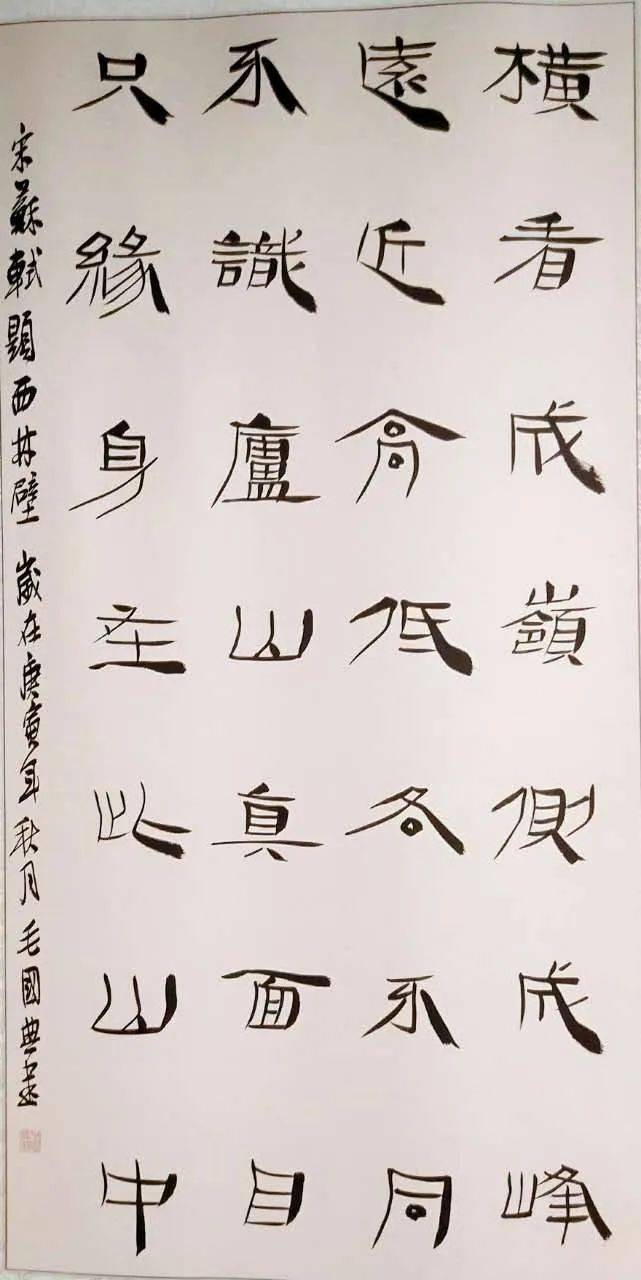 橫看成嶺側成峰
遠近高低各不同
不識廬山真面目
只緣身在此山中
宋蘇軾題西林壁 歲在庚寅年秋月毛國典書